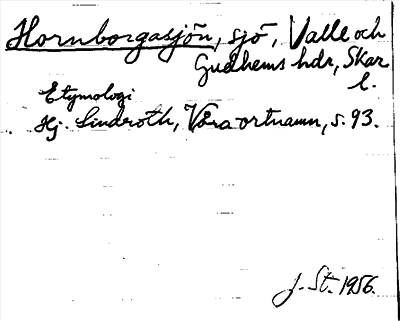 Hornborgasjön, sjö, Valle och
Gudhems hdr, Skar
l.
Etymologi
Hj. Lindroth, Våra ortnamn, s. 93.
J. St. 1956.